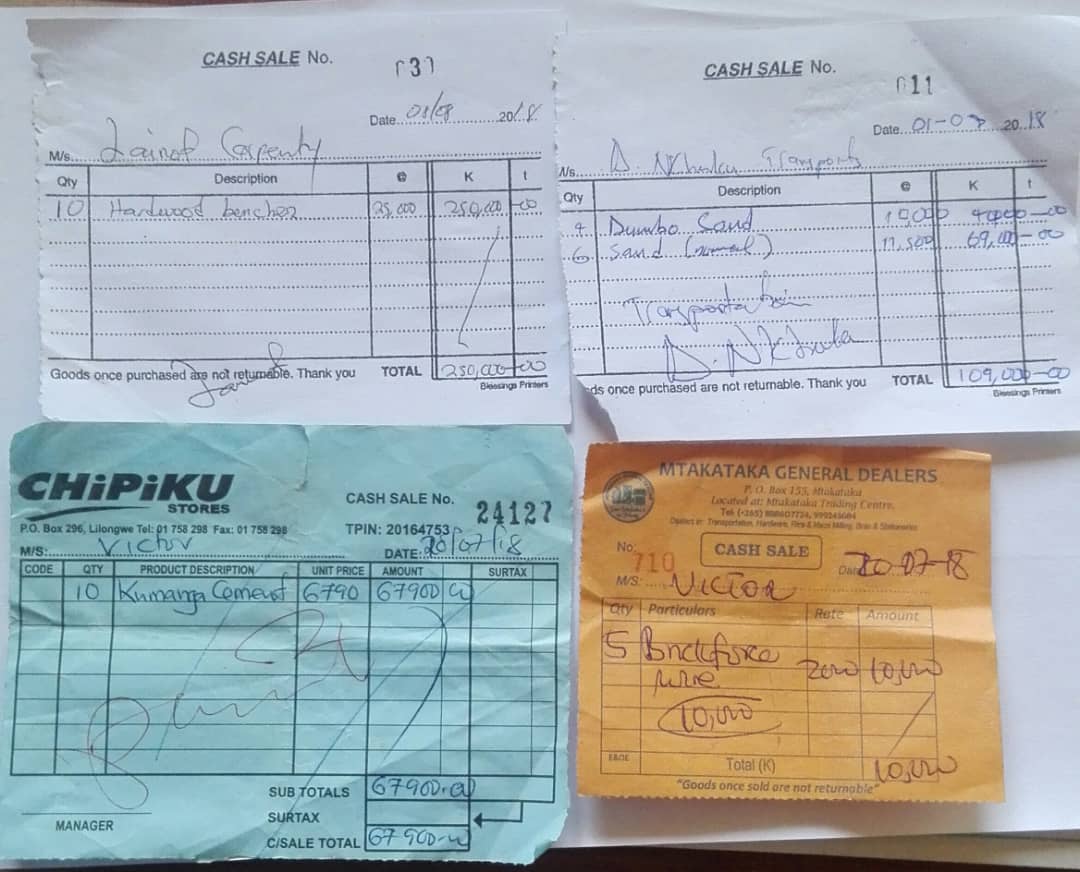 CASH SALE No. 031
Date 01/08 2018
M/s. Lainot Carpentry
Qty Description @ K t
10 Hardwood benches 25,000 250,000 -00
Goods once purchased are not returnable. Thank you TOTAL 250,000-00
Blessings Printers
CASH SALE No. 011
Date 01-07 2018
M/s. D. Transport
Qty Description @ K t
4 Dumbo Sand 10,000 40,000-00
6 Sand (normal) 11,500 69,000-00
Transportation
D.
ds once purchased are not returnable. Thank you TOTAL 109,000-00
Blessings Printers
CHiPiKU
STORES
CASH SALE No. 24127
P.O. Box 296, Lilongwe Tel: 01 758 298 Fax: 01 758 298 TPIN: 20164753
M/S: Victor DATE: 20/07/18
CODE QTY PRODUCT DESCRIPTION UNIT PRICE AMOUNT SURTAX
10 Kumanga Cement 6790 67900 00
SUB TOTALS 67900.00
SURTAX
MANAGER
C/SALE TOTAL 67900-00
MTAKATAKA GENERAL DEALERS
P. O. Box 155, Mtakataka
Located at: Mtakataka Trading Centre.
Tel: (+265) 888607724, 999245684
Dealers in: Transportation, Hardware, Flea & Maize Milling, Bran & Stationaries
No: 710 CASH SALE Date 20-07-18
M/S: VICTOR
Qty Particulars Rate Amount
5 Brickforce 2000 10,000
wire
10,000
E&OE Total (K) 10,000
"Goods once sold are not returnable"